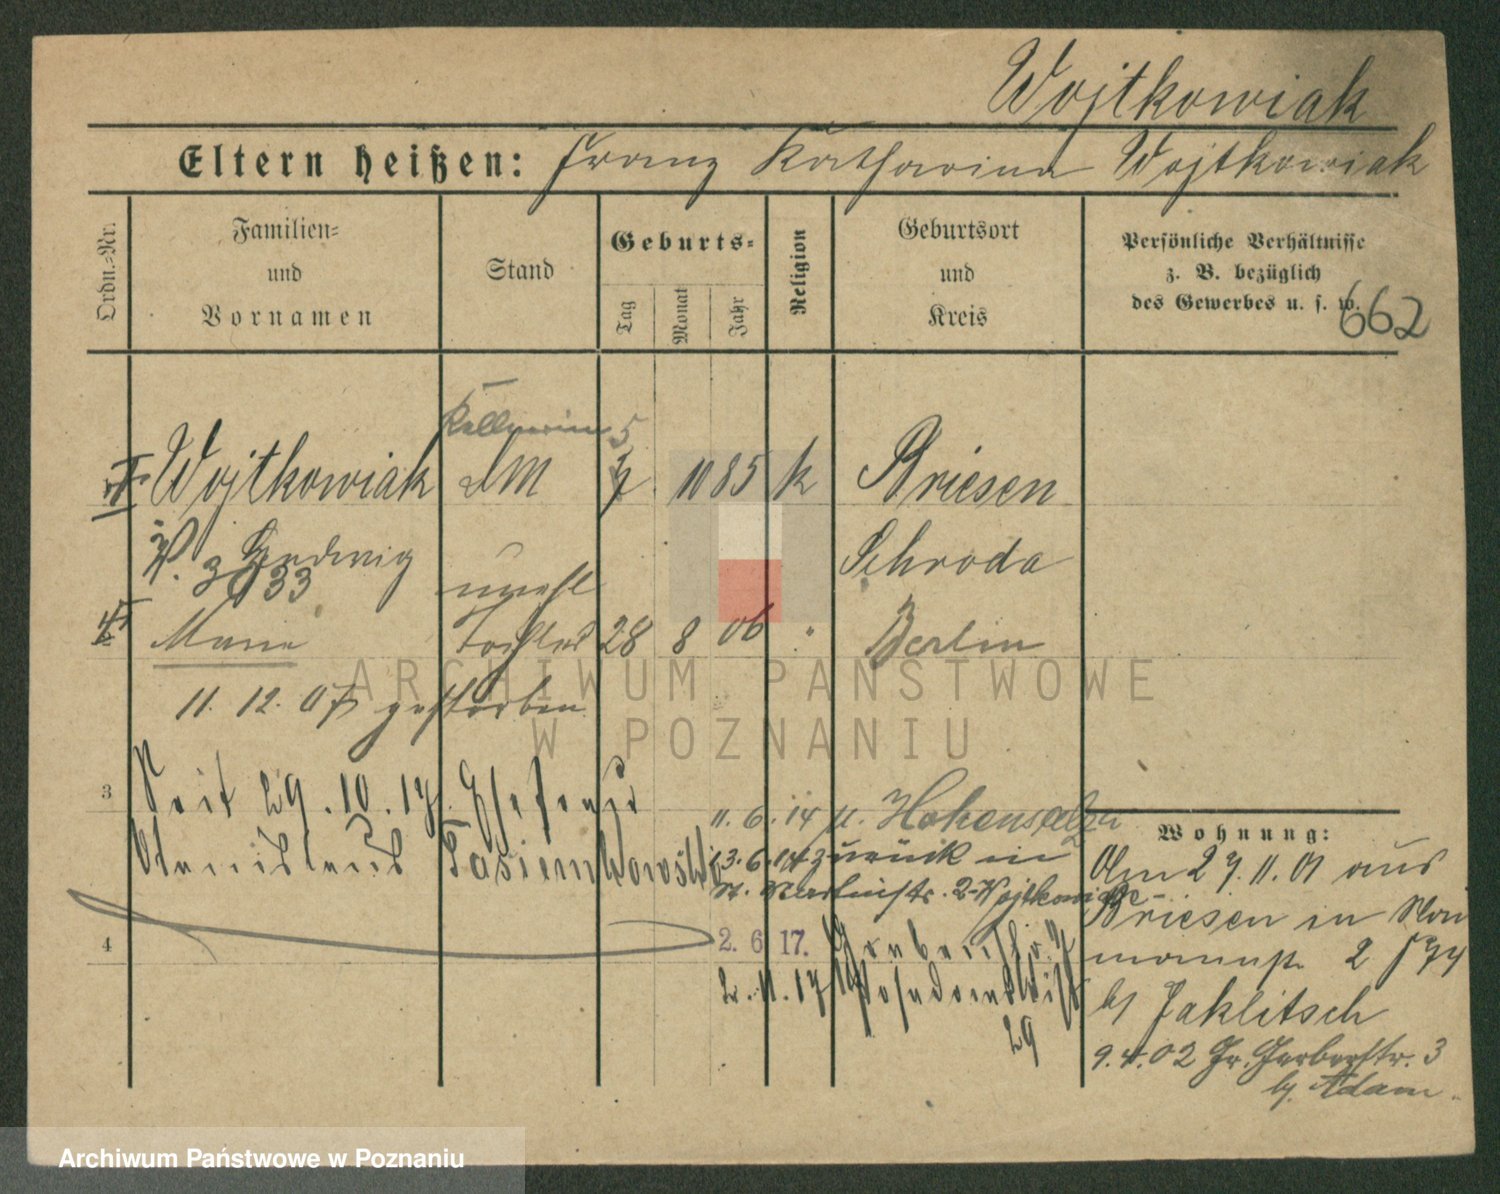 Wojtkowiak
Eltern heißen: Franz Katharina Wojtkowiak
Ordn.-Nr.
Familien-
und
Vornamen
Stand
Geburts-
Tag
Monat
Jahr
Religion
Geburtsort
und
Kreis
Persönliche Verhältnisse
z. B. bezüglich
des Gewerbes u. s. w.
662
Kellnerin 5
Wojtkowiak DM 10 85 k Briesen
Hedwig Schroda
unehl
Marie Tochter 28 8 06 " Berlin
11. 12. 07 gestorben
3 Seit 29. 10. 17. Ehefrau
11. 6. 14 n. Hohensalza
13. 6. 14 zurück in
2 Wojtkowiak
4
2. 6 17.
2. 11. 17
29
Wohnung:
Am 27. 11. 01 aus
Briesen in
2
b/ Jaklitsch
9. 4. 02 Gr. Gerberstr. 3
b/ Adam.
ARCHIWUM PAŃSTWOWE
W POZNANIU
Archiwum Państwowe w Poznaniu